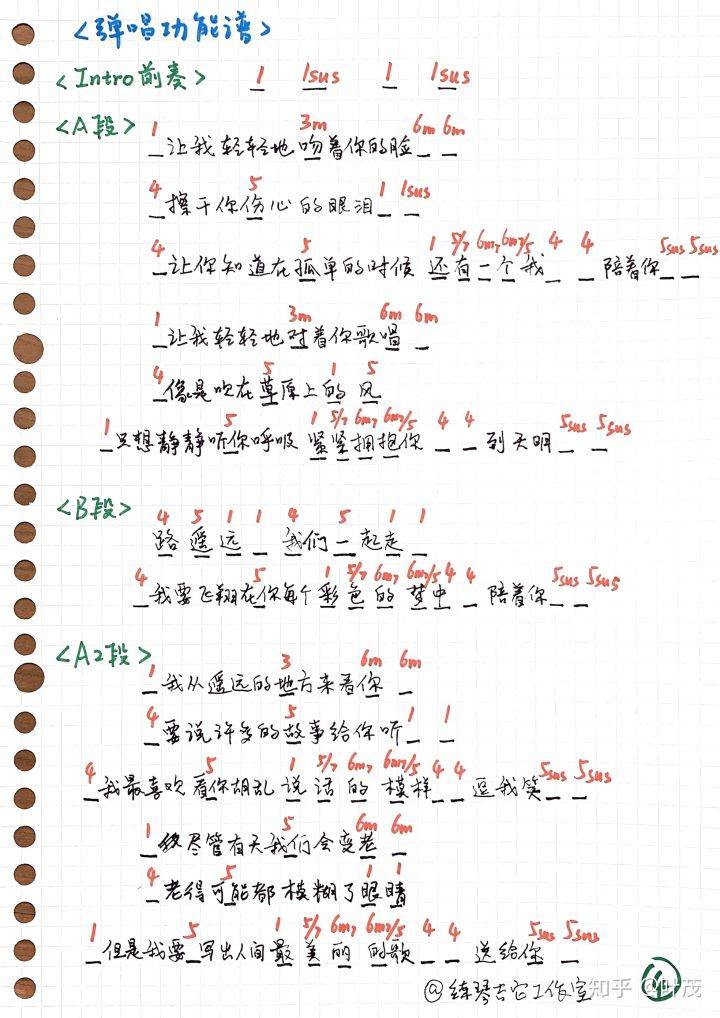 <弹唱功能谱>
<Intro前奏> 1 1sus 1 1sus
<A段> 1 3m 6m 6m
_让我轻轻地吻着你的脸_ _
4 5 1 1sus
_擦干你伤心的眼泪_ _
4 5 1 5/7 6m7 6m7/5 4 4 5sus 5sus
_让你知道在孤单的时候 还有一个我_ _陪着你_ _
1 3m 6m 6m
_让我轻轻地对着你歌唱_
4 5 1 5
_像是吹在草原上的风
1 5 1 5/7 6m7 6m7/5 4 4 5sus 5sus
_只想静静听你呼吸 紧紧拥抱你_ _到天明_ _
<B段> 4 5 1 1 4 5 1 1
路遥远_ 我们_起走_
4 5 1 5/7 6m7 6m7/5 4 4 5sus 5sus
_我要飞翔在你每个彩色的梦中_ 陪着你_ _
<A2段>
1 3 6m 6m
_我从遥远的地方来看你_
4 5 1 1
_要说许多的故事给你听_ _
4 5 1 5/7 6m7 6m7/5 4 4 5sus 5sus
_我最喜欢看你胡乱说话的模样_ _逗我笑_ _
1 5 6m 6m
_尽管有天我们会变老_
4 5 1 1
_老得可能都模糊了眼睛
1 5 1 5/7 6m7 6m7/5 4 4 5sus 5sus
_但是我要_写出人间最美丽的歌_ _送给你_ _
@练琴吉它工作室
知乎 @叶茂